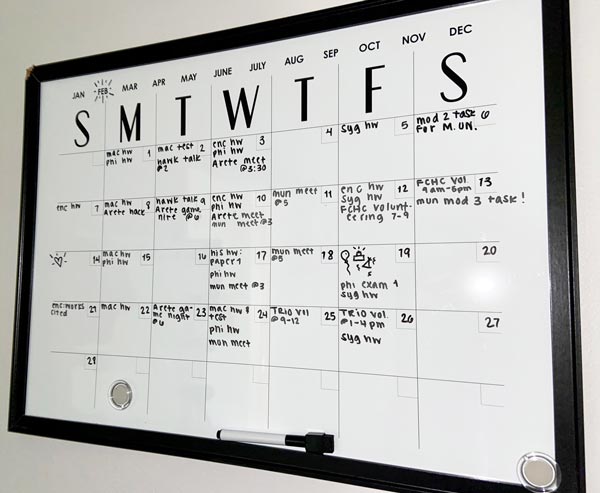 JAN FEB MAR APR MAY JUNE JULY AUG SEP OCT NOV DEC
S M T W T F S
1
mac hw
phi hw
2
mac test
hawk talk
@2
3
enc hw
phi hw
Arete meet
@3:30
4
5
syg hw
6
mod 2 task
for M.UN.
7
enc hw
8
mac hw
Arete hack
9
hawk talk
Arete game
nite @6
10
enc hw
phi hw
Arete meet
mun meet @3
11
mun meet
@5
12
enc hw
syg hw
FCHC volunt-
eering 7-9
13
FCHC vol.
9am-5pm
mun mod 3 task!
14
15
mac hw
phi hw
16
17
his hw:
paper 1
phi hw
mun meet @3
18
mun meet
@5
19
phi exam 1
syg hw
20
21
enc: works
cited
22
mac hw
23
Arete ga-
me night
@6
24
mac hw &
test
phi hw
mun meet
25
TRIO vol
@9-12
26
TRIO vol.
@1-4pm
syg hw
27
28